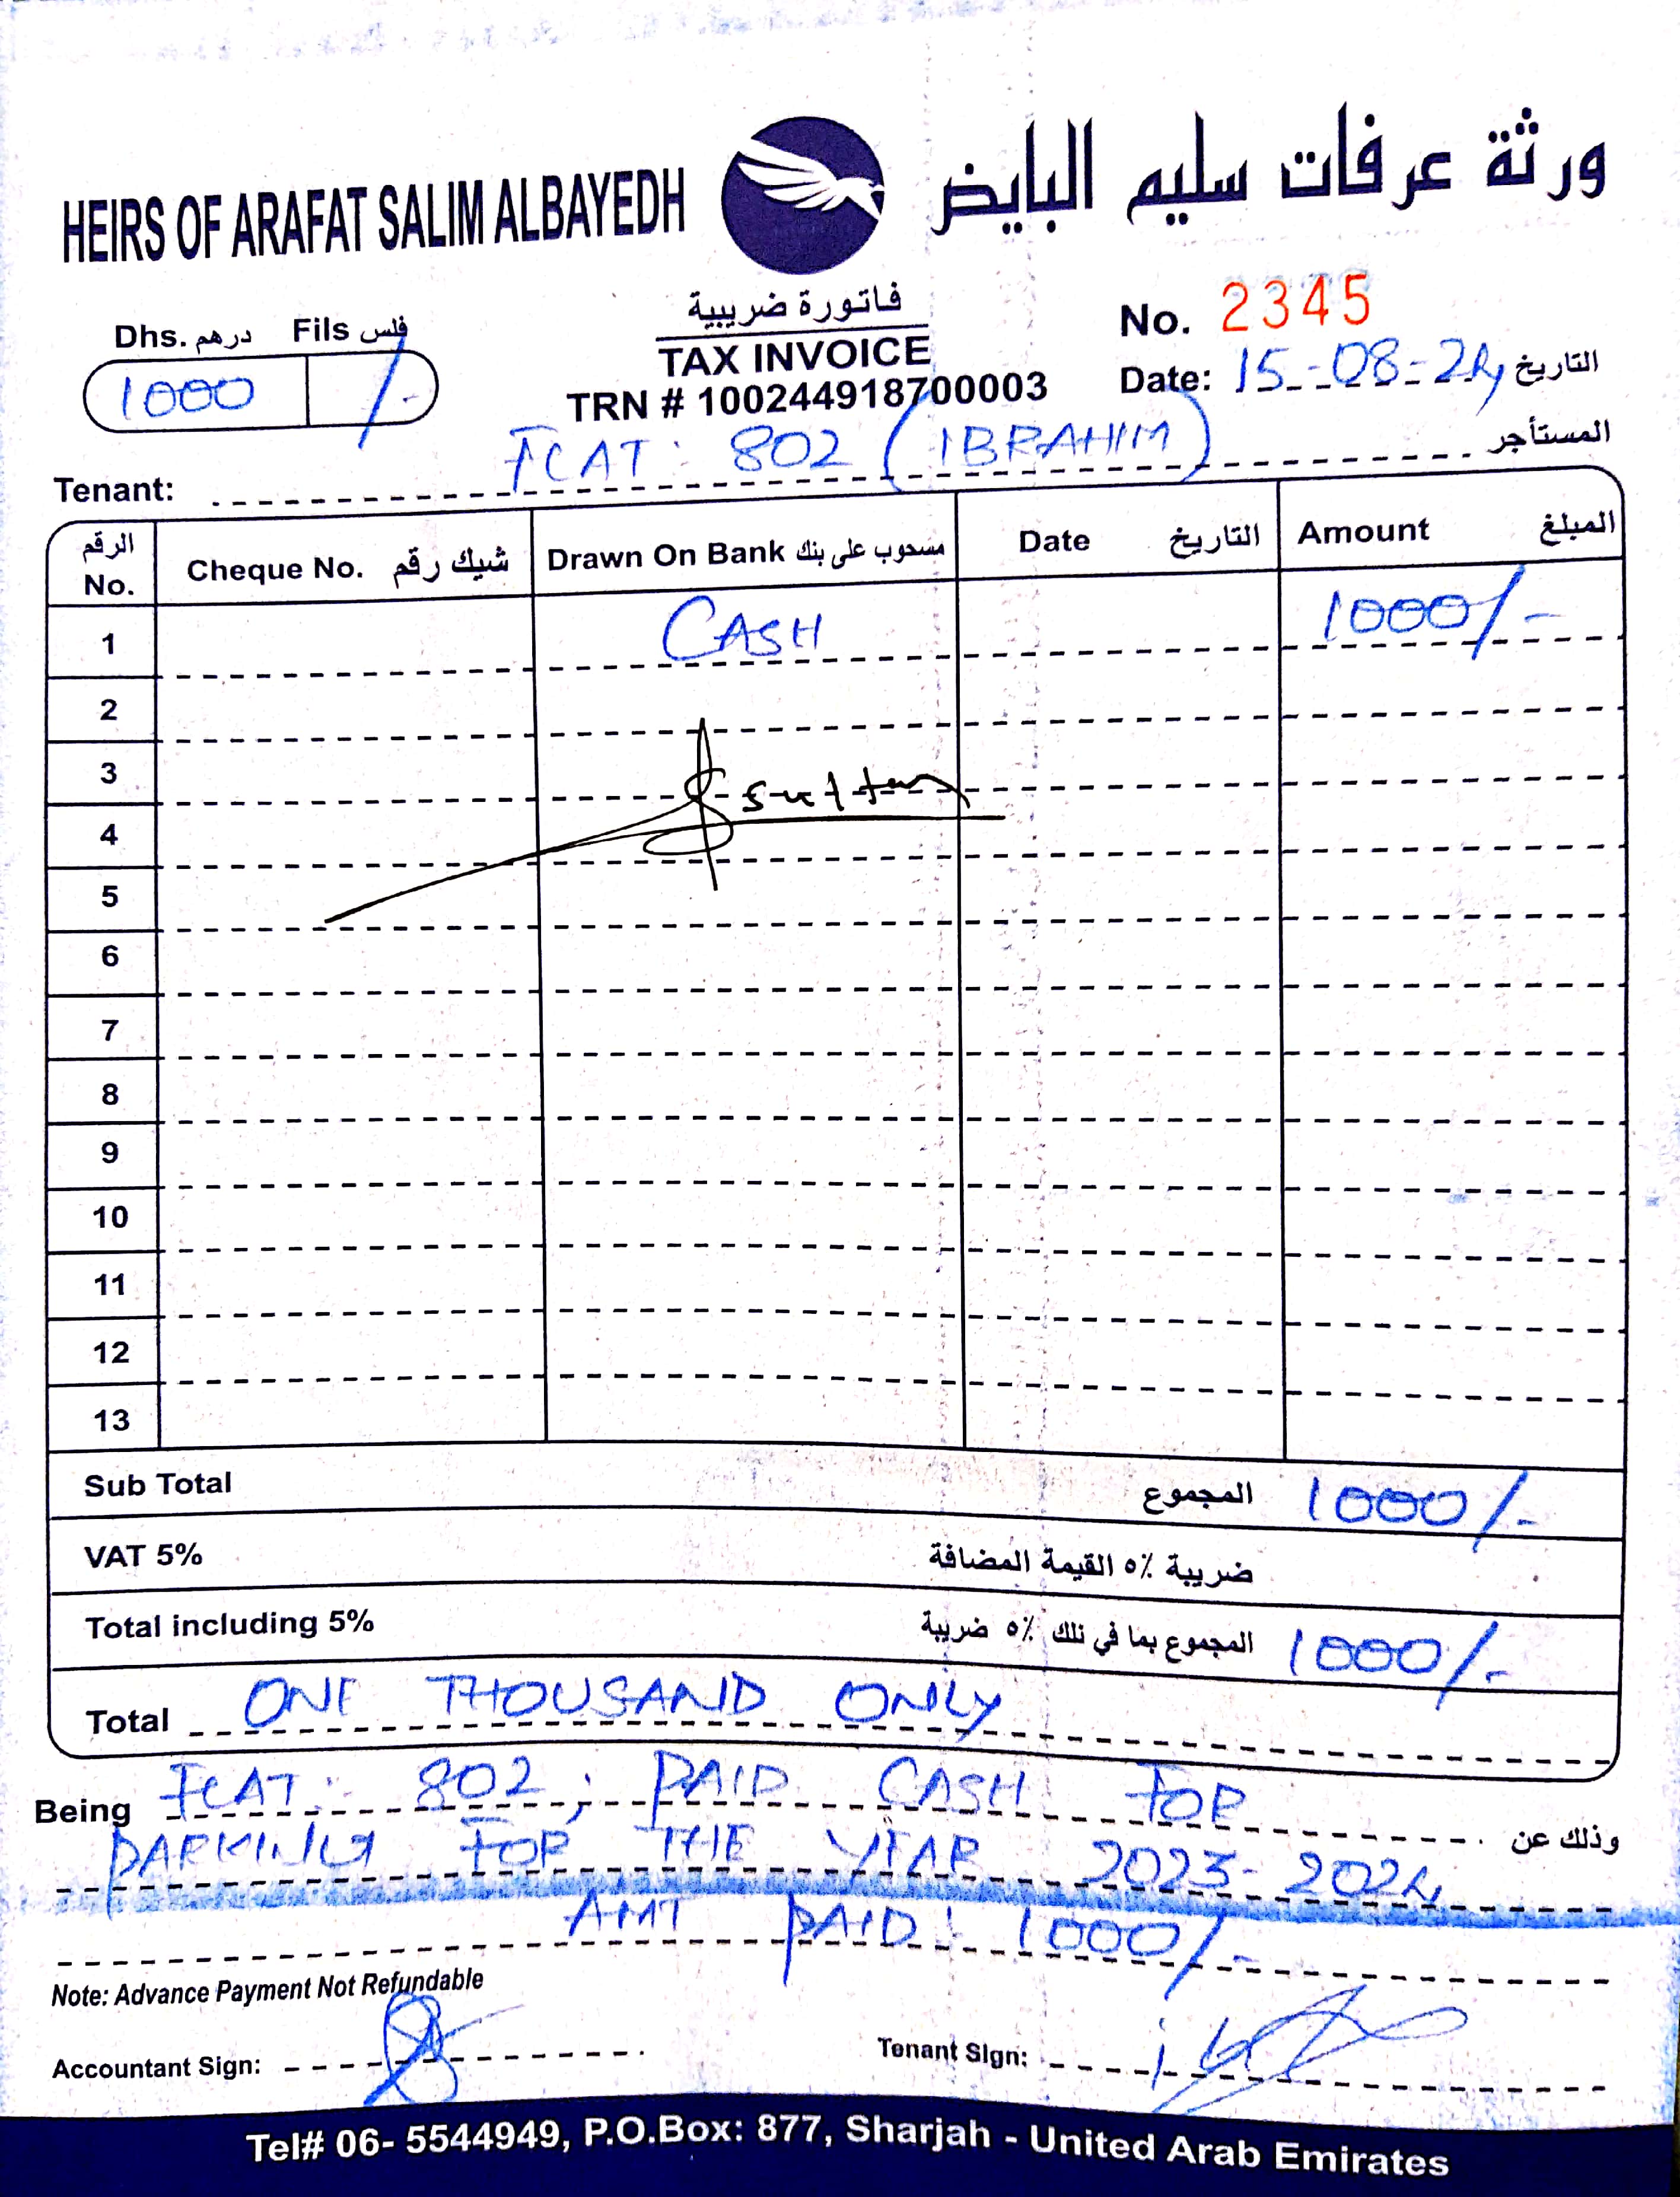 HEIRS OF ARAFAT SALIM ALBAYEDH
ورثة عرفات سليم البايض
Dhs. درهم Fils فلس
1000 /-
فاتورة ضريبية
TAX INVOICE
TRN # 100244918700003
No. 2345
Date: 15-08-24 التاريخ
Tenant: FLAT: 802 (IBRAHIM) المستأجر
الرقم No. Cheque No. شيك رقم Drawn On Bank مسحوب على بنك Date التاريخ Amount المبلغ
1 CASH 1000/-
2
3 Sultan
4
5
6
7
8
9
10
11
12
13
Sub Total المجموع 1000/-
VAT 5% ضريبة ٥٪ القيمة المضافة
Total including 5% المجموع بما في ذلك ٥٪ ضريبة 1000/-
Total ONE THOUSAND ONLY
Being FLAT: 802; PAID CASH FOR وذلك عن
PARKING FOR THE YEAR 2023-2024
AMT PAID: 1000/-
Note: Advance Payment Not Refundable
Accountant Sign:
Tenant Sign:
Tel# 06- 5544949, P.O.Box: 877, Sharjah - United Arab Emirates